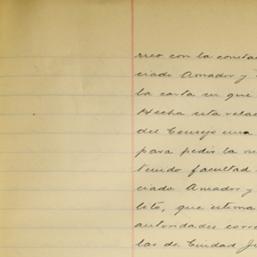 rreo con la consta
ciado Amador y
la carta en que
Hecha esta rela
del Consejo una
para pedir la re
tenido facultad
ciado Amador y
leto, que estima
autoridades corre
las de Ciudad Ju